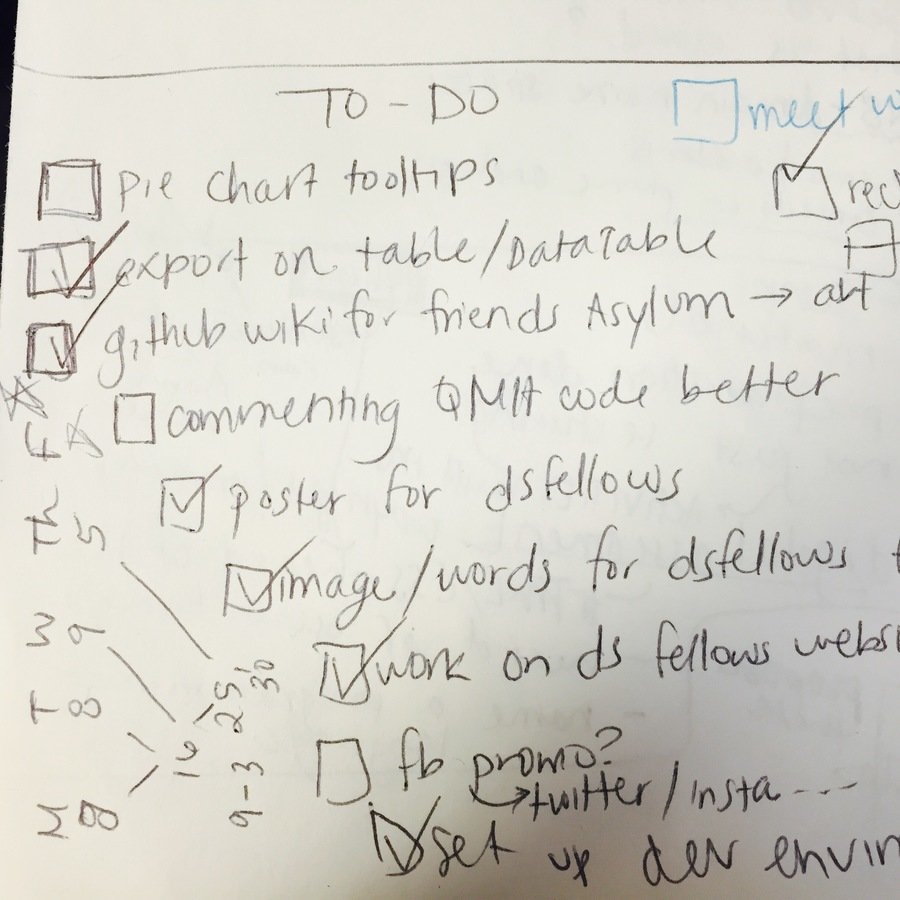 TO-DO
meet w
pie chart tooltips
rec
export on table/DataTable
github wiki for friends Asylum → art
commenting QMH code better
poster for dsfellows
image/words for dsfellows
work on ds fellows websi
fb promo?
→ twitter/insta ----
set up dev envir
M 8
T 8
W 9
Th 5
F
16
25
9-3
30